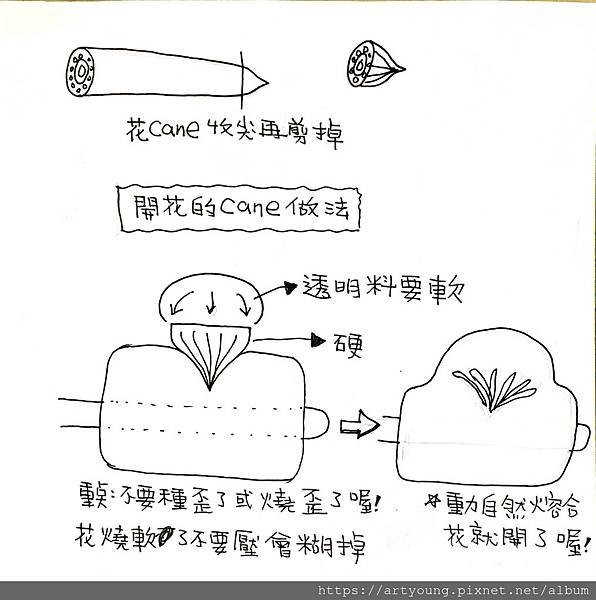 花Cane收尖再剪掉
開花的Cane做法
透明料要軟
硬
重點:不要種歪了或燒歪了喔!
花燒軟了不要壓會糊掉
☆動自然熔合
花就開了喔!
https://artyoung.pixnet.net/album